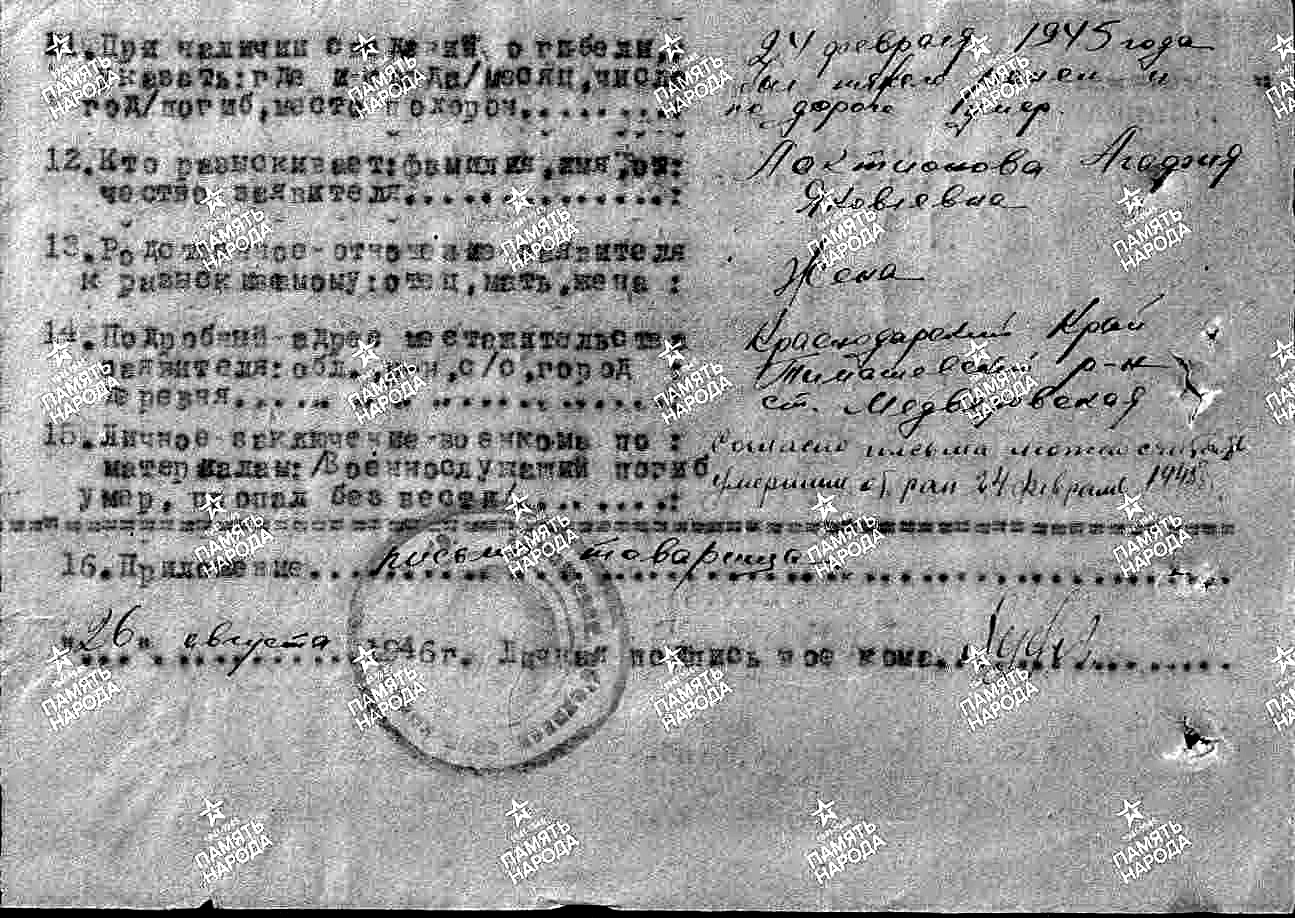 11. При наличии сведений о гибели,
указать: где и когда/месяц, число
год/погиб, место похорон.........
24 февраля 1945 года
был тяжел ранен и
по дороге умер.
12. Кто разыскивает: фамилия, имя, от:
чество заявителя..............:
Лактионова Агафия
Яковлевна
13. Родственное отношение заявителя
к разыскиваемому: отец, мать, жена :
Жена
14. Подробный адрес местожительства
заявителя: обл., р-он, с/с, город :
деревня.......................
Краснодарский Край
Тимашевский р-н
ст. Медведовская
15. Личное заключение военкома по :
материалам: /Военнослужащий погиб
умер, пропал без вести/.........:
Согласно письма можно считать
умершим от ран 24 февраля 1945г.
16. Приложение... письмо товарища
"26" августа 1946г. Личная подпись военкома
ПАМЯТЬ НАРОДА